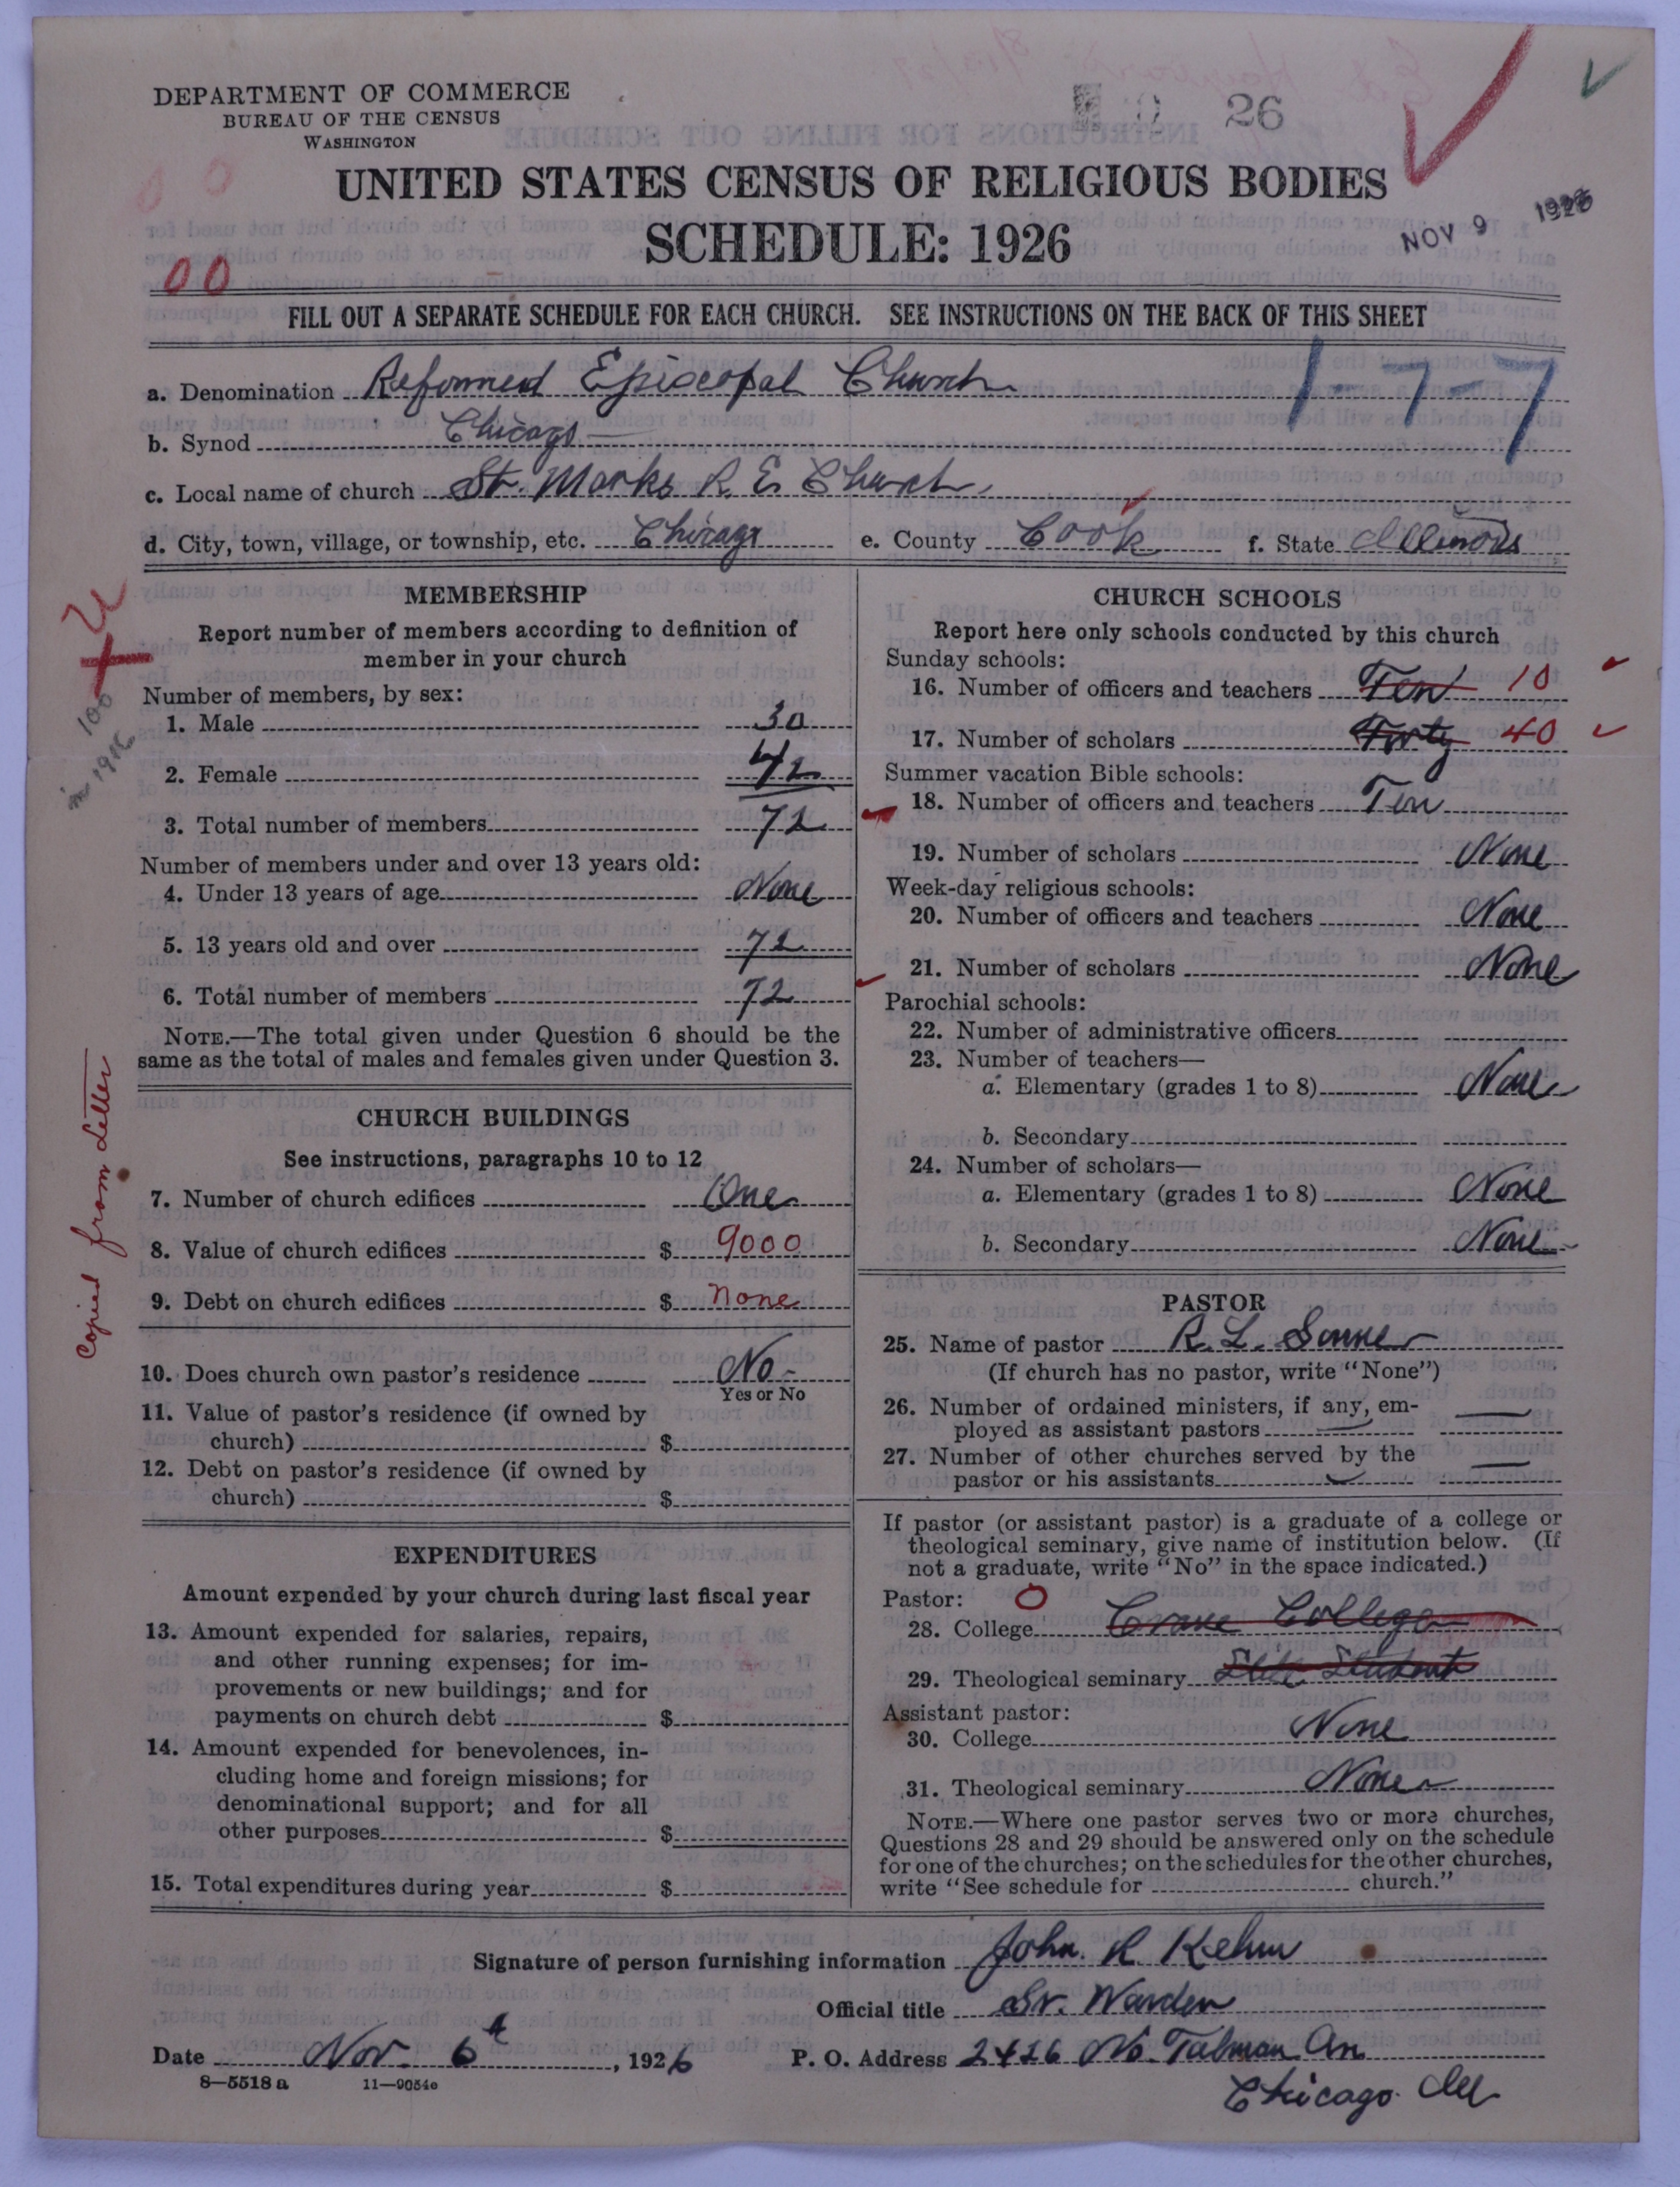 DEPARTMENT OF COMMERCE
BUREAU OF THE CENSUS
WASHINGTON
26
UNITED STATES CENSUS OF RELIGIOUS BODIES
SCHEDULE: 1926
NOV 9 1926
00
00
FILL OUT A SEPARATE SCHEDULE FOR EACH CHURCH. SEE INSTRUCTIONS ON THE BACK OF THIS SHEET
1-7-7
a. Denomination Reformed Episcopal Church
b. Synod Chicago
c. Local name of church St. Marks R. E. Church
d. City, town, village, or township, etc. Chicago e. County Cook f. State Illinois
100
in 1916
Copied from Letter
MEMBERSHIP
Report number of members according to definition of
member in your church
Number of members, by sex:
1. Male 30
2. Female 42
3. Total number of members 72
Number of members under and over 13 years old:
4. Under 13 years of age None
5. 13 years old and over 72
6. Total number of members 72
NOTE.—The total given under Question 6 should be the
same as the total of males and females given under Question 3.
CHURCH BUILDINGS
See instructions, paragraphs 10 to 12
7. Number of church edifices One
8. Value of church edifices $ 9000
9. Debt on church edifices $ none
10. Does church own pastor's residence No
Yes or No
11. Value of pastor's residence (if owned by
church) $
12. Debt on pastor's residence (if owned by
church) $
EXPENDITURES
Amount expended by your church during last fiscal year
13. Amount expended for salaries, repairs,
and other running expenses; for im-
provements or new buildings; and for
payments on church debt $
14. Amount expended for benevolences, in-
cluding home and foreign missions; for
denominational support; and for all
other purposes $
15. Total expenditures during year $
CHURCH SCHOOLS
Report here only schools conducted by this church
Sunday schools:
16. Number of officers and teachers Ten 10
17. Number of scholars Forty 40
Summer vacation Bible schools:
18. Number of officers and teachers Ten
19. Number of scholars None
Week-day religious schools:
20. Number of officers and teachers None
21. Number of scholars None
Parochial schools:
22. Number of administrative officers
23. Number of teachers—
a. Elementary (grades 1 to 8) None
b. Secondary
24. Number of scholars—
a. Elementary (grades 1 to 8) None
b. Secondary None
PASTOR
25. Name of pastor R. L.
(If church has no pastor, write "None")
26. Number of ordained ministers, if any, em-
ployed as assistant pastors
27. Number of other churches served by the
pastor or his assistants
If pastor (or assistant pastor) is a graduate of a college or
theological seminary, give name of institution below. (If
not a graduate, write "No" in the space indicated.)
Pastor: 0
28. College Crane College
29. Theological seminary Still Student
Assistant pastor:
30. College None
31. Theological seminary None
NOTE.—Where one pastor serves two or more churches,
Questions 28 and 29 should be answered only on the schedule
for one of the churches; on the schedules for the other churches,
write "See schedule for church."
Signature of person furnishing information John. R Kehm
Official title Sr. Warden
Date Nov. 6th, 1926 P. O. Address 2426 No. Talman Av
Chicago Ill
8—5518 a 11—9054c